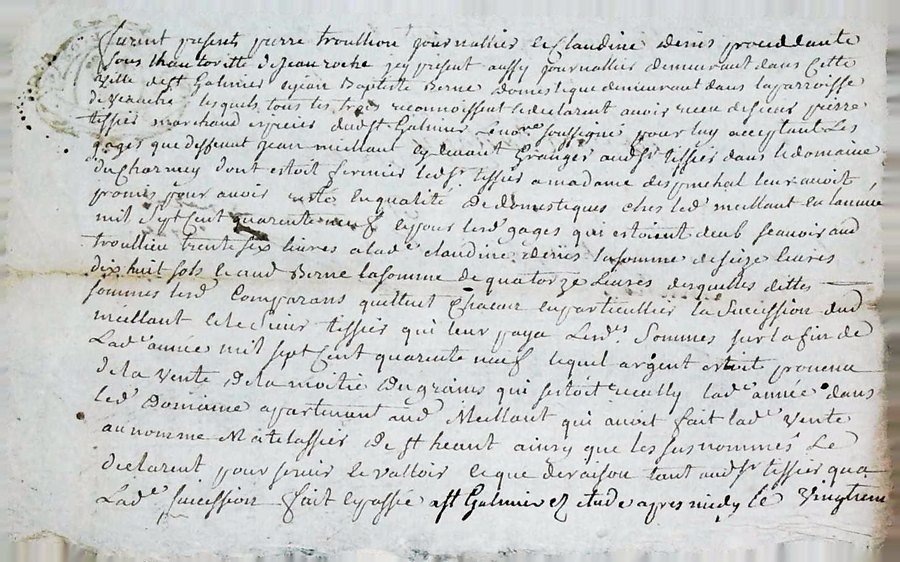 furent presents pierre troullion journallier et Claudine denis proceddante
sous lhautoritte de jean roche icy present aussy journallier demeurant dans cette
ville de st Galmier et jean Baptiste Berne domestique demeurant dans la parroisse
de veauche lesquels tous les trois reconnoissent et declarent avoir receu de sieur pierre
tissier marchand epicier dud. st Galmier et no.re soussigné pour luy acceptant Les
gages que deffunt jean meillant cy devant Granger aud. sr tissier dans le domaine
du Charnay dont estoit fermier led. sr tissier a madame leur avoit
promis pour avoir restés en qualité de domestiques chez led. meillant en lannée
mil sept Cent quarente neuf et pour lesd. gages qui estoient deub scavoir aud.
troullion trente six livres a lad.e claudine denis la somme de seize livres
dix huit sols et aud. Berne la somme de quatorze livres desquelles dittes
sommes lesd. Comparans quittent Chacun en particullier la succession dud.
meillant et le sieur tissier qui leur paya lesd. sommes sur la fin de
Lad.e année mil sept Cent quarente neuf lequel argent estoit provenu
de la vente de la moitié du grains qui sestoit lad.e année dans
led. Domaine apartenant aud. Meillant qui avoit fait lad.e vente
au nommé Matelassier de st heant ainsy que les susnommés Le
declarent pour servir et valloir ce que de raison tant aud. sr tissier qua
Lad.e succession fait et passé a st Galmier et etude apres midy le vingtieme